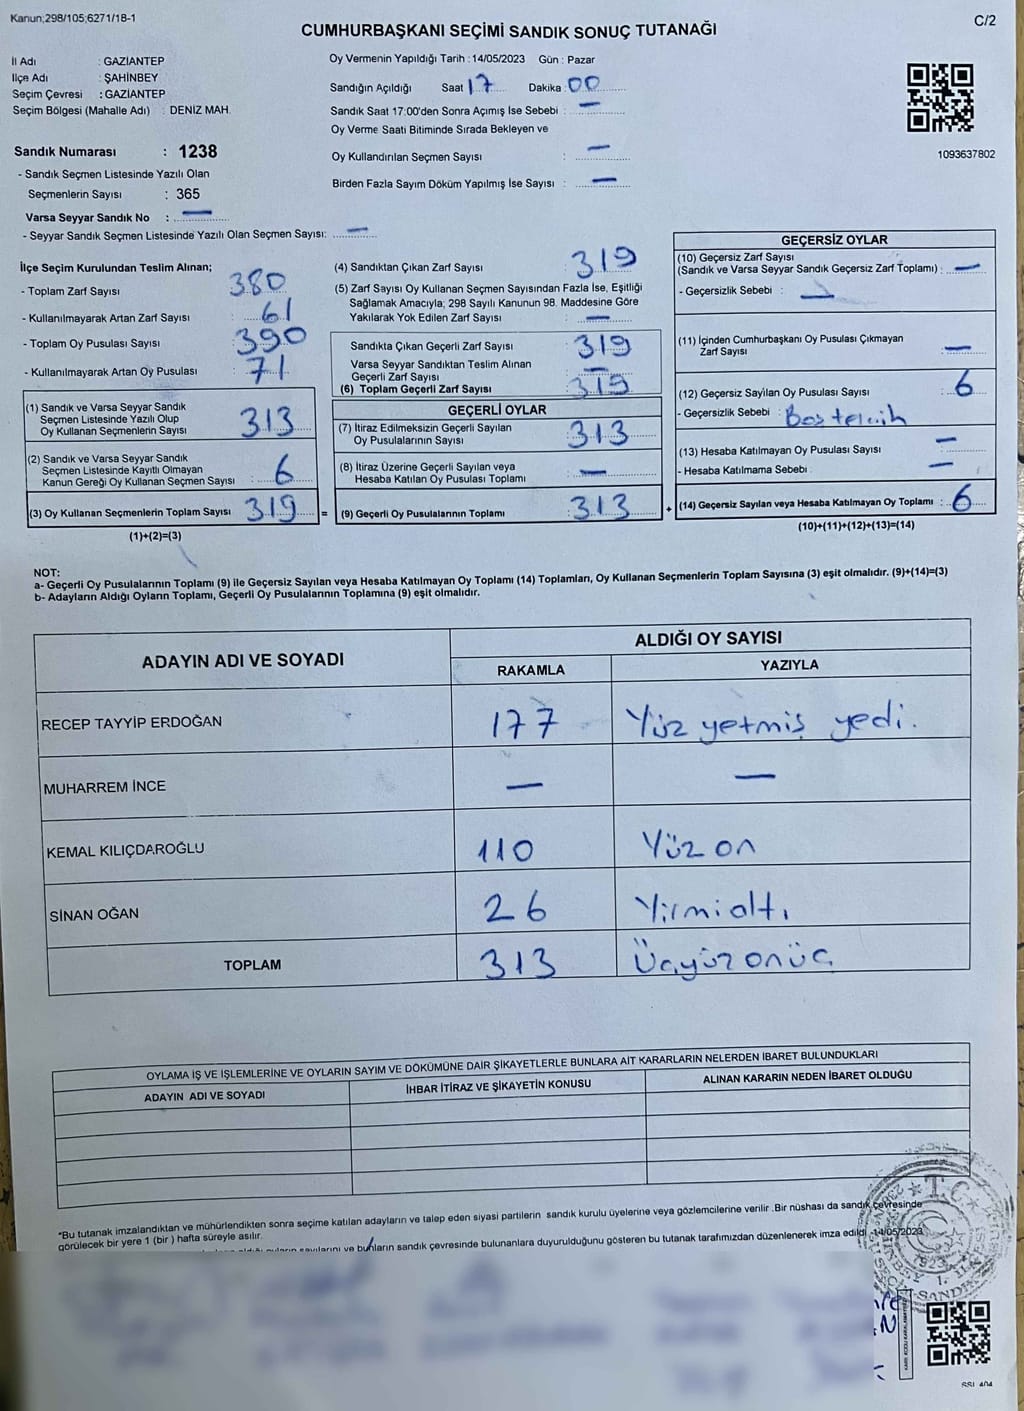 Kanun;298/105;6271/18-1
C/2
CUMHURBAŞKANI SEÇİMİ SANDIK SONUÇ TUTANAĞI
İl Adı : GAZİANTEP
İlçe Adı : ŞAHİNBEY
Seçim Çevresi : GAZİANTEP
Seçim Bölgesi (Mahalle Adı) : DENİZ MAH.
Oy Vermenin Yapıldığı Tarih : 14/05/2023 Gün : Pazar
Sandığın Açıldığı Saat 17 Dakika : 00
Sandık Saat 17:00'den Sonra Açımış İse Sebebi : —
Oy Verme Saati Bitiminde Sırada Bekleyen ve
Oy Kullandırılan Seçmen Sayısı : —
Birden Fazla Sayım Döküm Yapılmış İse Sayısı : —
1093637802
Sandık Numarası : 1238
- Sandık Seçmen Listesinde Yazılı Olan
Seçmenlerin Sayısı : 365
Varsa Seyyar Sandık No : —
- Seyyar Sandık Seçmen Listesinde Yazılı Olan Seçmen Sayısı: —
İlçe Seçim Kurulundan Teslim Alınan;
- Toplam Zarf Sayısı : 380
- Kullanılmayarak Artan Zarf Sayısı : 61
- Toplam Oy Pusulası Sayısı : 390
- Kullanılmayarak Artan Oy Pusulası : 71
(1) Sandık ve Varsa Seyyar Sandık
Seçmen Listesinde Yazılı Olup
Oy Kullanan Seçmenlerin Sayısı : 313
(2) Sandık ve Varsa Seyyar Sandık
Seçmen Listesinde Kayıtlı Olmayan
Kanun Gereği Oy Kullanan Seçmen Sayısı : 6
(3) Oy Kullanan Seçmenlerin Toplam Sayısı : 319 =
(1)+(2)=(3)
(4) Sandıktan Çıkan Zarf Sayısı : 319
(5) Zarf Sayısı Oy Kullanan Seçmen Sayısından Fazla İse, Eşitliği
Sağlamak Amacıyla; 298 Sayılı Kanunun 98. Maddesine Göre
Yakılarak Yok Edilen Zarf Sayısı : —
Sandıkta Çıkan Geçerli Zarf Sayısı : 319
Varsa Seyyar Sandıktan Teslim Alınan
Geçerli Zarf Sayısı : —
(6) Toplam Geçerli Zarf Sayısı : 319
GEÇERLİ OYLAR
(7) İtiraz Edilmeksizin Geçerli Sayılan
Oy Pusulalarının Sayısı : 313
(8) İtiraz Üzerine Geçerli Sayılan veya
Hesaba Katılan Oy Pusulası Toplamı : —
(9) Geçerli Oy Pusulalarının Toplamı : 313 +
GEÇERSİZ OYLAR
(10) Geçersiz Zarf Sayısı
(Sandık ve Varsa Seyyar Sandık Geçersiz Zarf Toplamı) : —
- Geçersizlik Sebebi : —
(11) İçinden Cumhurbaşkanı Oy Pusulası Çıkmayan
Zarf Sayısı : —
(12) Geçersiz Sayılan Oy Pusulası Sayısı : 6
- Geçersizlik Sebebi : Boş tercih
(13) Hesaba Katılmayan Oy Pusulası Sayısı : —
- Hesaba Katılmama Sebebi : —
(14) Geçersiz Sayılan veya Hesaba Katılmayan Oy Toplamı : 6
(10)+(11)+(12)+(13)=(14)
NOT:
a- Geçerli Oy Pusulalarının Toplamı (9) ile Geçersiz Sayılan veya Hesaba Katılmayan Oy Toplamı (14) Toplamları, Oy Kullanan Seçmenlerin Toplam Sayısına (3) eşit olmalıdır. (9)+(14)=(3)
b- Adayların Aldığı Oyların Toplamı, Geçerli Oy Pusulalarının Toplamına (9) eşit olmalıdır.
ADAYIN ADI VE SOYADI
ALDIĞI OY SAYISI
RAKAMLA YAZIYLA
RECEP TAYYİP ERDOĞAN 177 Yüz yetmiş yedi.
MUHARREM İNCE — —
KEMAL KILIÇDAROĞLU 110 Yüz on
SİNAN OĞAN 26 Yirmialtı
TOPLAM 313 Üçyüz onüç
OYLAMA İŞ VE İŞLEMLERİNE VE OYLARIN SAYIM VE DÖKÜMÜNE DAİR ŞİKAYETLERLE BUNLARA AİT KARARLARIN NELERDEN İBARET BULUNDUKLARI
ADAYIN ADI VE SOYADI İHBAR İTİRAZ VE ŞİKAYETİN KONUSU ALINAN KARARIN NEDEN İBARET OLDUĞU
*Bu tutanak imzalandıktan ve mühürlendikten sonra seçime katılan adayların ve talep eden siyasi partilerin sandık kurulu üyelerine veya gözlemcilerine verilir. Bir nüshası da sandık çevresinde
görülecek bir yere 1 (bir) hafta süreyle asılır.
ve bunların sandık çevresinde bulunanlara duyurulduğunu gösteren bu tutanak tarafımızdan düzenlenerek imza edildi. 14/05/2023
T.C.